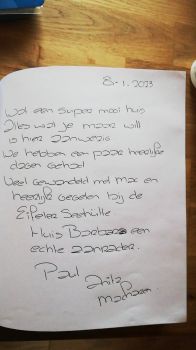 8-1.2023
Wat een super mooi huis
Alles wat je maar will
is hier aanwezig
We hebben een paar heerlijke
dagen gehad
Veel gewandeld met Max en
heerlijk gegeten bij de
Eifeler Seehütte
Huis Barbara een
echte aanrader.
Paul Anita